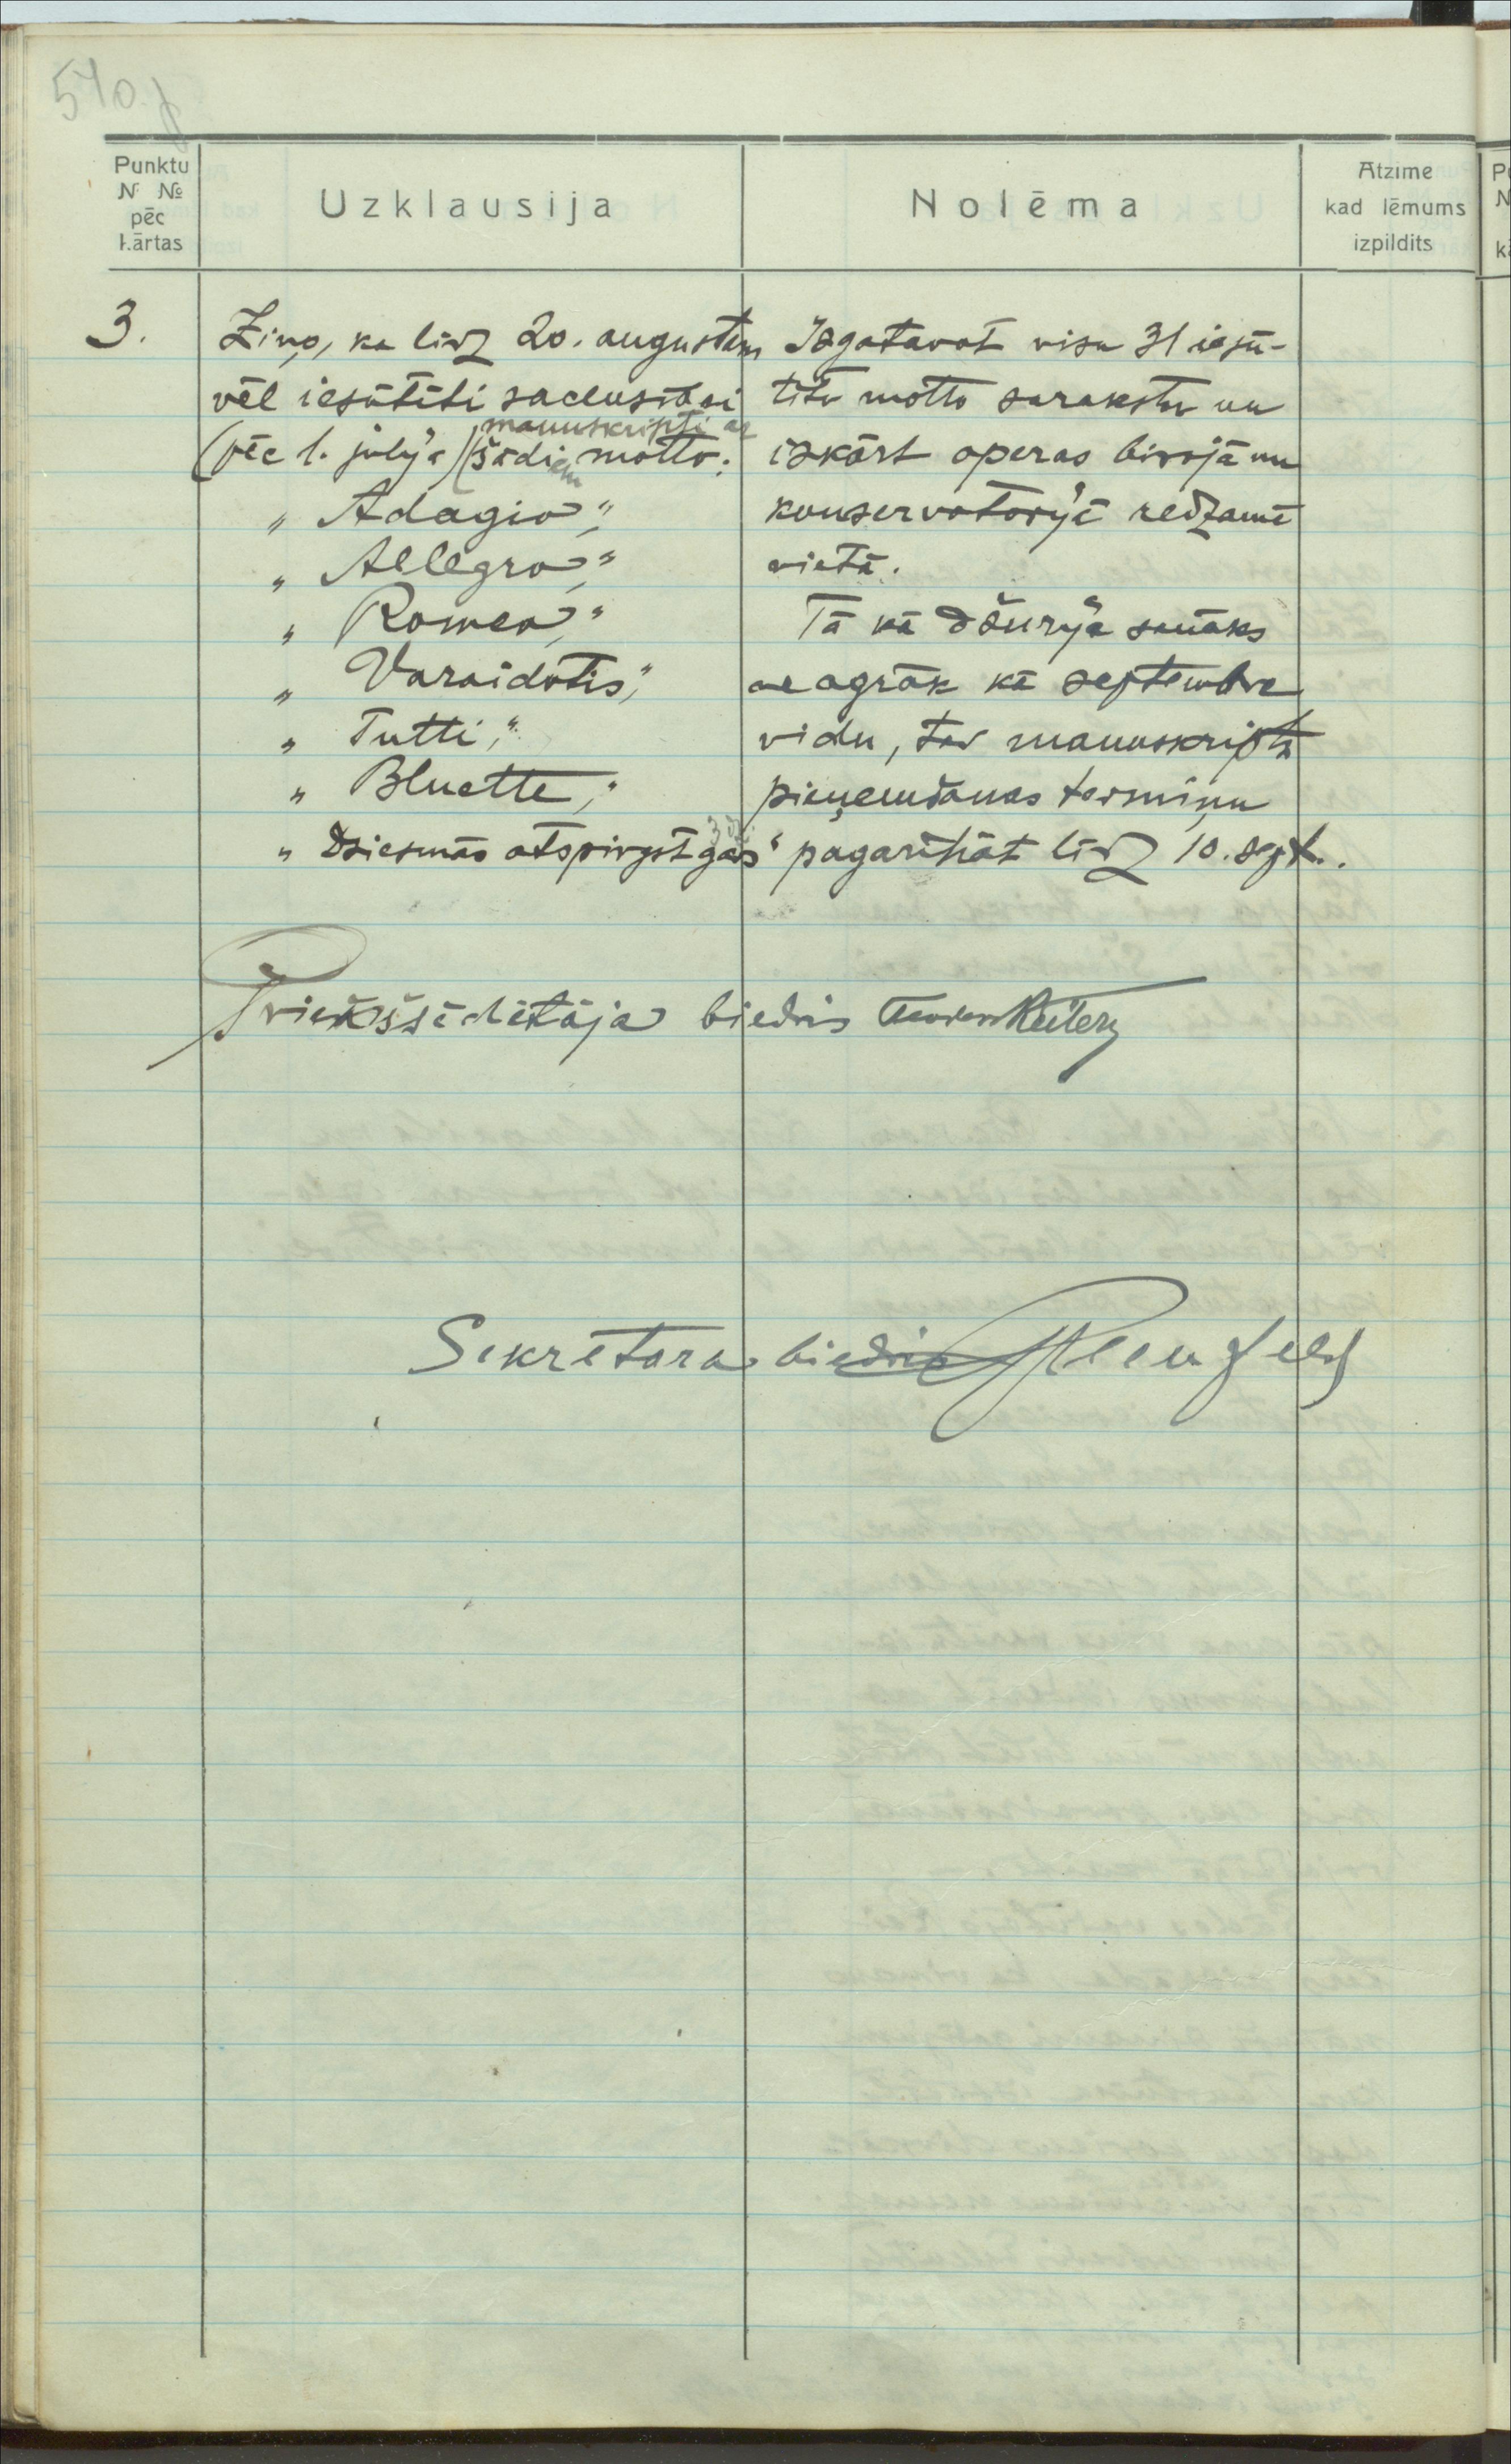 540.
Punktu
N № pēc
kārtas
Uzklausija
Nolēma
Atzime
kad lēmums
izpildits
3.
Ziņo, ka līdz 20. augustam
vēl iesūtīti sacensībai
manuskripti ar
(pēc 1. julija) šādiem motto:
„Adagio”,
„Allegro”,
„Romeo”,
„Varaidotis”,
„Tutti”,
„Bluette”,
„Dziesmās atspirgst gars”
Izgatavot visu 31 iesū-
tīto motto sarakstu un
izkārt operas birojā un
konservatorijā redzamā
vietā.
Tā kā džurija sanāks
ne agrāk kā septembra
vidu, tad manuskriptu
pieņemšanas termiņu
pagarināt līdz 10. sept.
Priekšsēdētāja biedris Teodors Reiters
Sekretara biedris